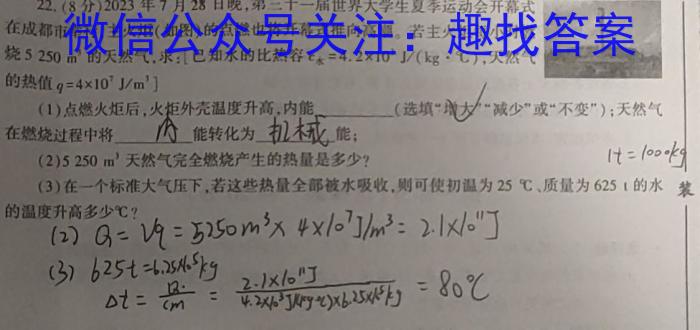 22. (8分)2023年7月28日晚,第三十一届世界大学生夏季运动会开幕式
微信公众号关注：趣找答案
在成都市
烧5 250 m³的天然气,求:[已知水的比热容c水=4.2×10³ J/(kg·℃),天然气
的热值q=4×10⁷ J/m³]
(1)点燃火炬后,火炬外壳温度升高,内能 (选填“增大”“减少”或“不变”);天然气
在燃烧过程中将 内 能转化为 机械 能;
(2)5 250 m³天然气完全燃烧产生的热量是多少?
1t=1000kg
(3)在一个标准大气压下,若这些热量全部被水吸收,则可使初温为25 ℃、质量为625 t的水
装
的温度升高多少℃?
(2) Q=Vq=5250m³×4×10⁷J/m³=2.1×10¹¹J
(3) 625t=6.25×10⁵kg
Δt= Q/cm = 2.1×10¹¹J/4.2×10³J/(kg·℃)×6.25×10⁵kg =80℃